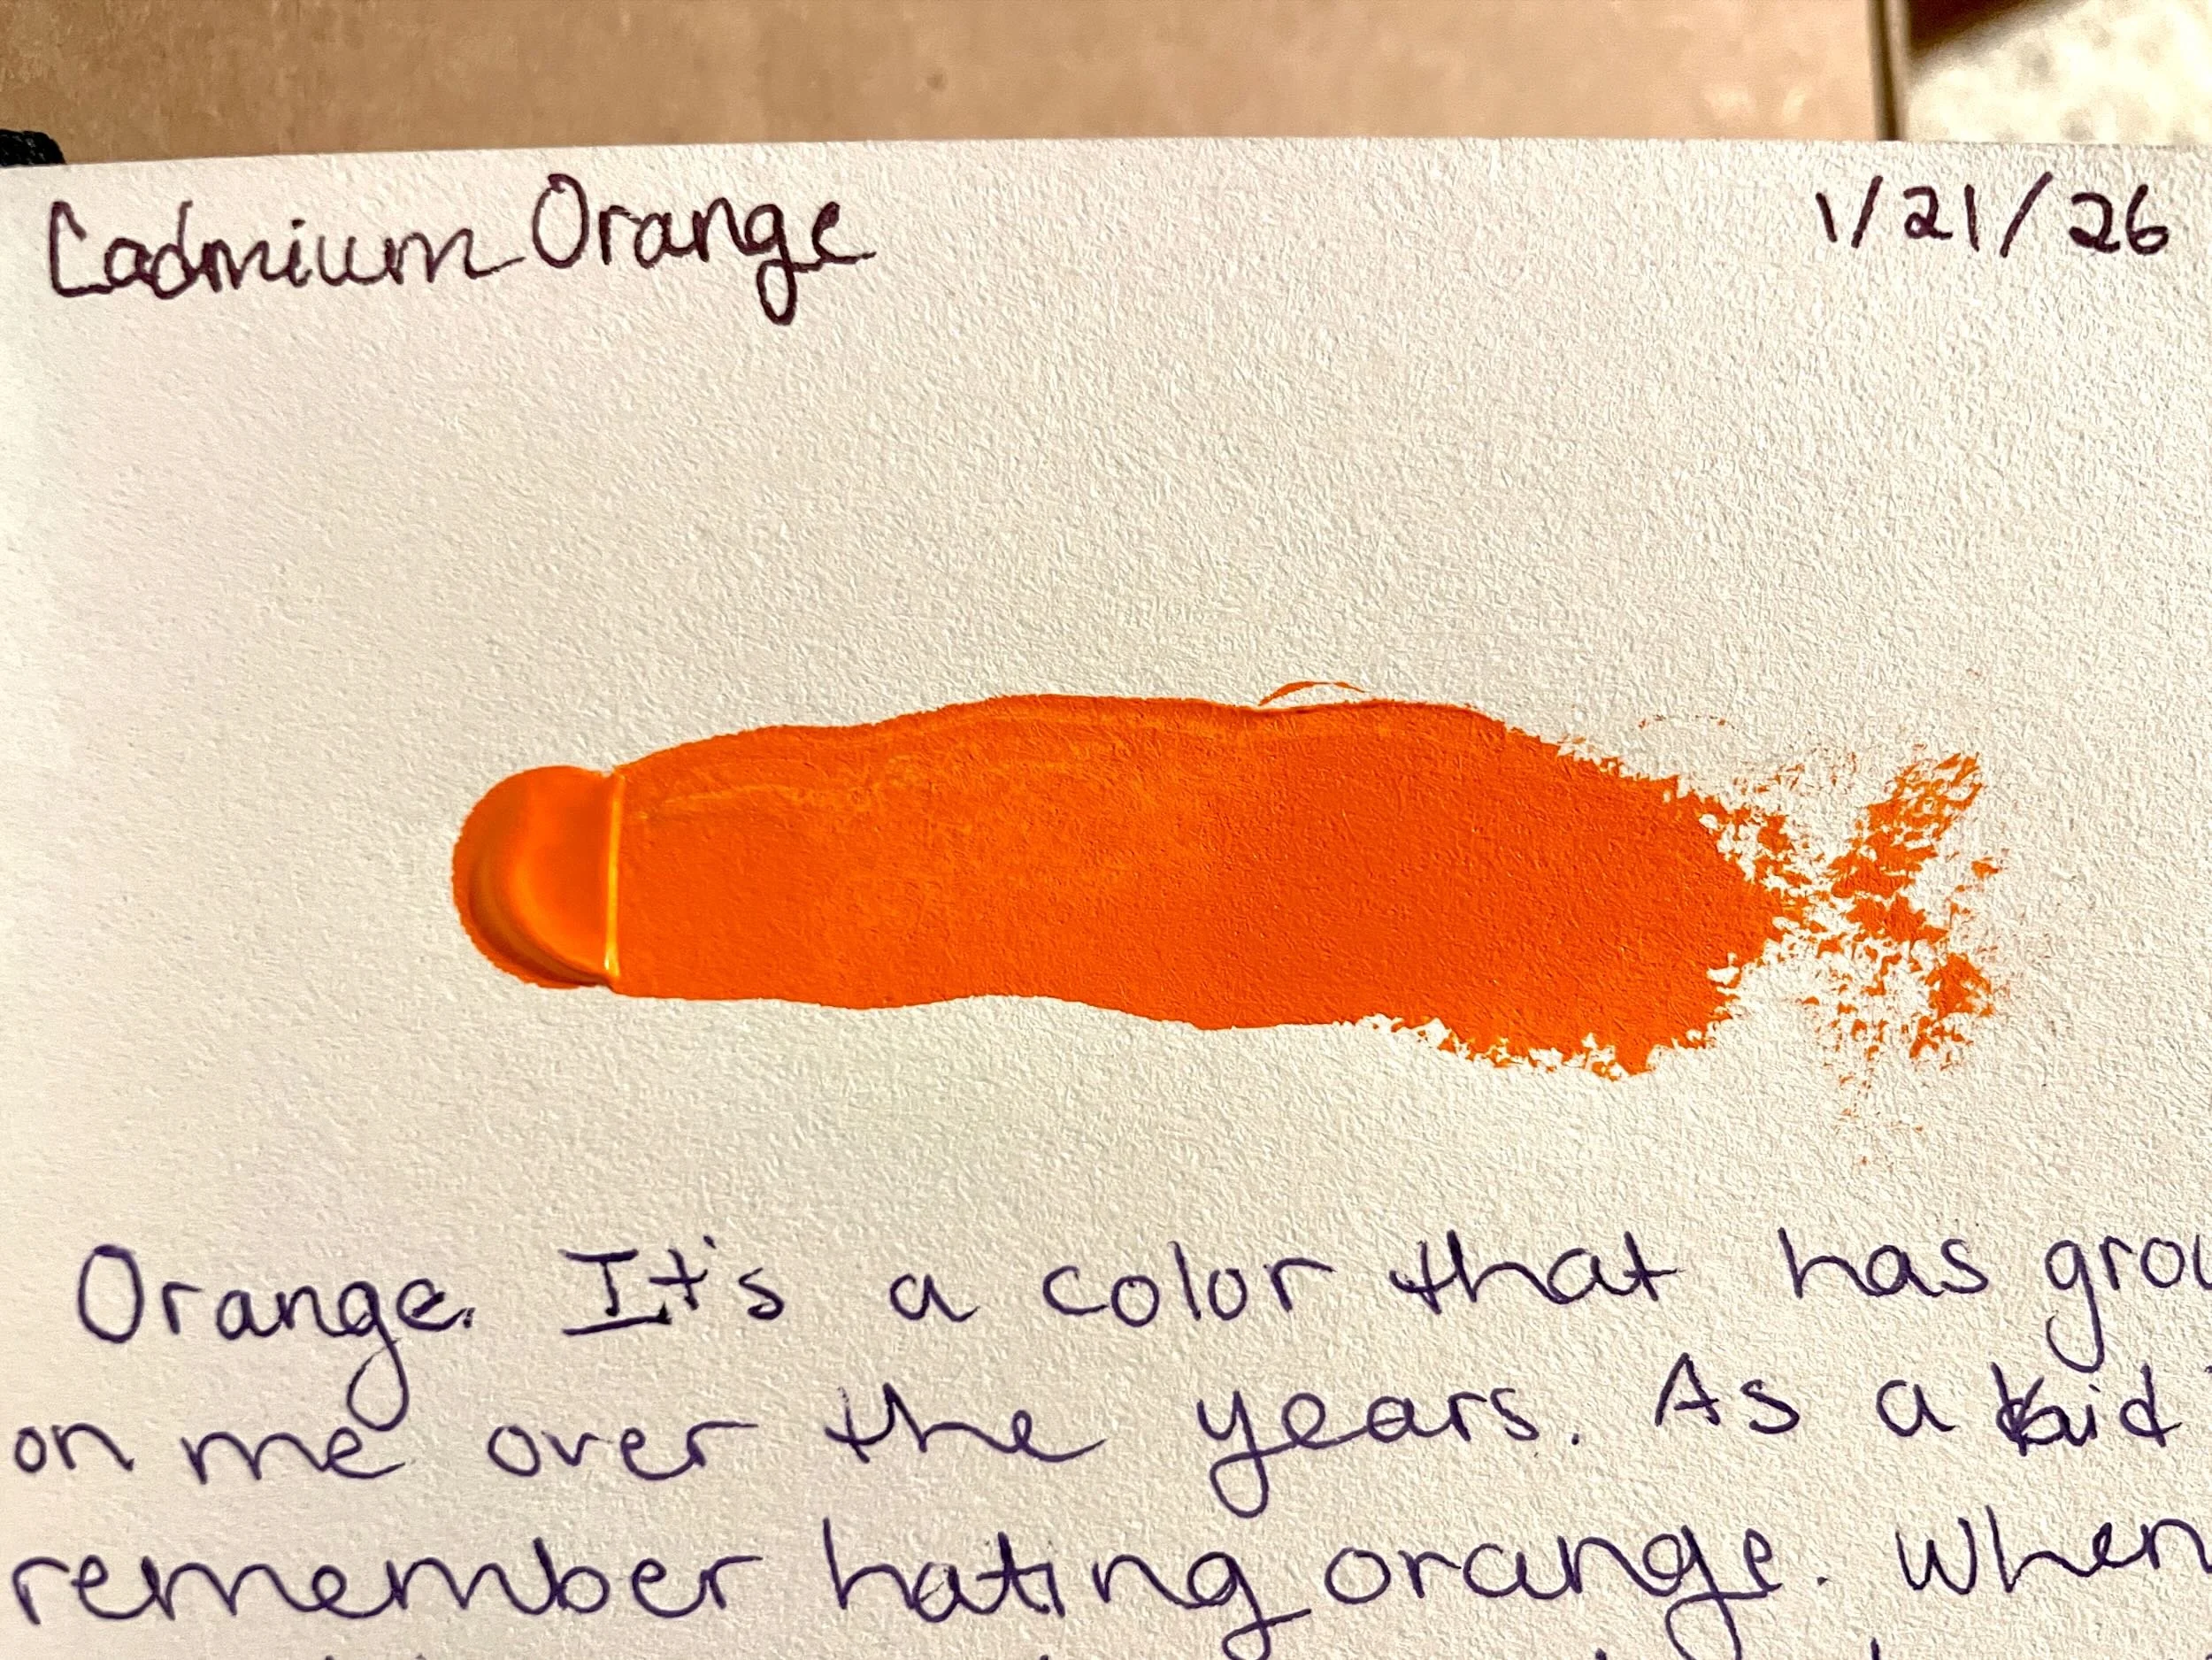 Cadmium Orange 1/21/26
Orange. It's a color that has
on me over the years. As a kid
remember hating orange. When